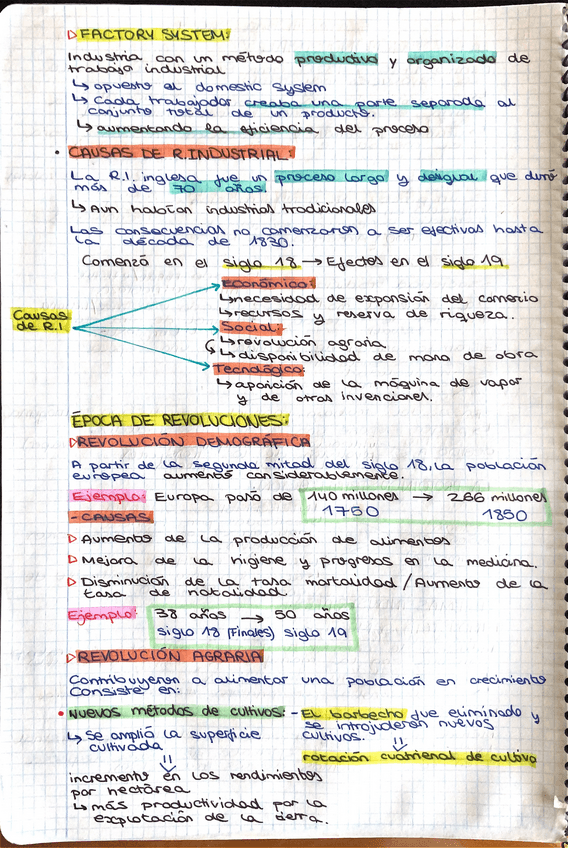 ▷ FACTORY SYSTEM:
Industria con un método productivo y organizado de
trabajo industrial
↳ opuesto al domestic system
↳ Cada trabajador creaba una parte separada al
conjunto total de un producto.
↳ aumentando la eficiencia del proceso
• CAUSAS DE R.INDUSTRIAL:
La R.I. inglesa fue un proceso largo y desigual que duró
más de 70 años.
↳ Aun habían industrias tradicionales
Las consecuencias no comenzaron a ser efectivas hasta
la década de 1830.
Comenzó en el siglo 18 → Efectos en el siglo 19
Causas
de R.I.
Económico:
↳ necesidad de expansión del comercio
↳ recursos y reserva de riqueza.
Social:
↳ revolución agraria
↳ disponibilidad de mano de obra
Tecnológico:
↳ aparición de la máquina de vapor
y de otras invenciones.
ÉPOCA DE REVOLUCIONES:
▷ REVOLUCIÓN DEMOGRÁFICA
A partir de la segunda mitad del siglo 18, la población
europea aumentó considerablemente.
Ejemplo: Europa pasó de 140 millones → 266 millones
1750 1850
- CAUSAS
▷ Aumento de la producción de alimentos
▷ Mejora de la higiene y progresos en la medicina.
▷ Disminución de la tasa mortalidad / Aumento de la
tasa de natalidad.
Ejemplo: 38 años → 50 años
siglo 18 (Finales) siglo 19
▷ REVOLUCIÓN AGRARIA
Contribuyeron a alimentar una población en crecimiento
Consiste en:
• Nuevos métodos de cultivos: - El barbecho fue eliminado y
se introdujeron nuevos
cultivos.
↳ Se amplió la superficie
cultivada
rotación cuatrienal de cultivo
incremento en los rendimientos
por hectárea
↳ más productividad por la
explotación de la tierra.